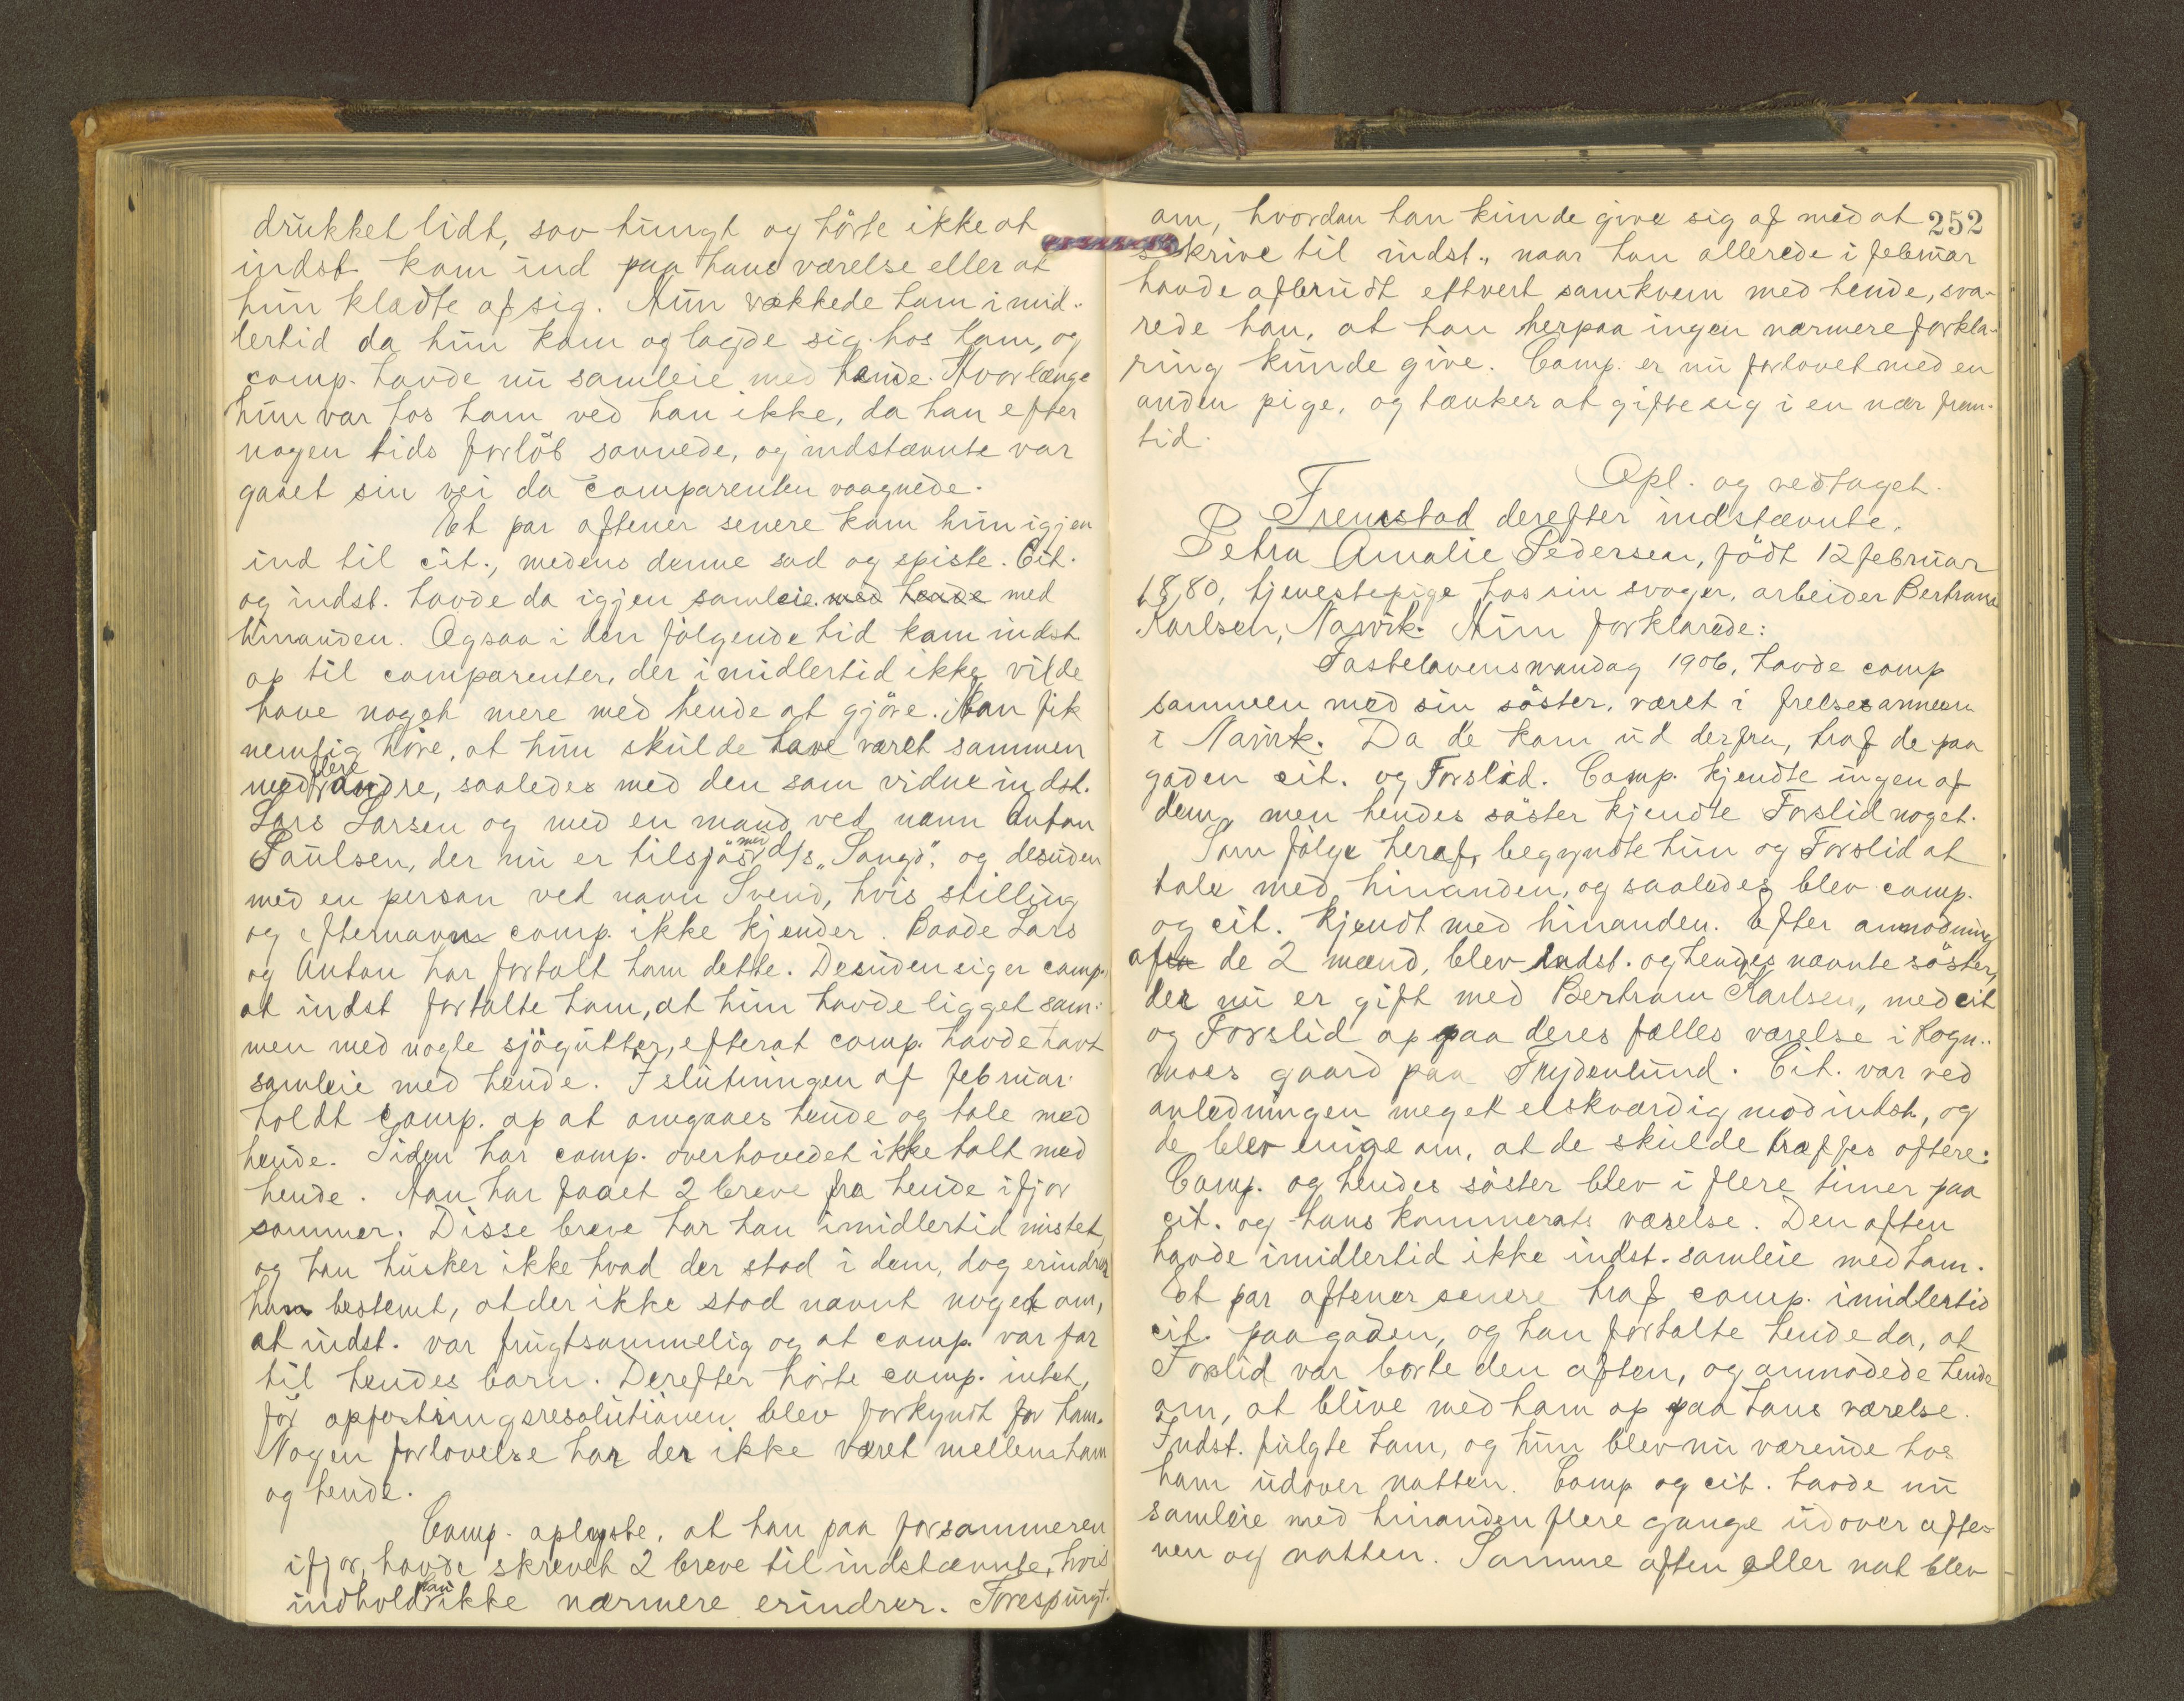 drukket lidt, sov tungt og hörte ikke at
indst. kom ind paa hans værelse eller at
hun klædte af sig. Hun vækkede ham imid-
lertid da hun kom og lagde sig hos ham, og
comp. havde nu samleie med hende. Hvorlænge
hun var hos ham ved han ikke, da han efter
nogen tids forlöb sovnede, og indstævnte var
gaaet sin vei da comparenten vaagnede.
Et par aftener senere kom hun igjen
ind til cit., medens denne sad og spiste. Cit.
og indst. havde da igjen samleie med hende med
hinanden. Ogsaa i den fölgende tid kom indst.
op til comparenten, der imidlertid ikke vilde
have noget mere med hende at gjöre. Han fik
nemlig höre, at hun skulde have været sammen
med flere andre, saaledes med den som vidne indst.
Lars Larsen og med en mand ved navn Anton
Paulsen, der nu er tilsjös med d/s "Sangö", og desuden
med en person ved navn Svend, hvis stilling
og efternavn comp. ikke kjender. Baade Lars
og Anton har fortalt ham dette. Desuden siger comp.
at indst fortalte ham, at hun havde ligget sam-
men med nogle sjögutter, efterat comp. havde havt
samleie med hende. I slutningen af februar
holdt comp. op at omgaaes hende og tale med
hende. Siden har comp. overhovedet ikke talt med
hende. Han har faaet 2 breve fra hende ifjor
sommer. Disse breve har han imidlertid mistet,
og han husker ikke hvad der stod i dem, dog erindrer
han bestemt, at der ikke stod nævnt noget om,
at indst. var frugtsommelig og at comp. var far
til hendes barn. Derefter hörte comp. intet,
för opfostringsresolutionen blev forkyndt for ham.
Nogen forlovelse har der ikke været mellem ham
og hende.
Comp. oplyste, at han paa forsommeren
ifjor, havde skrevet 2 breve til indstævnte, hvis
indhold han ikke nærmere erindrer. Forespurgt
252
om, hvordan han kunde give sig af med at
skrive til indst., naar han allerede i februar
havde afbrudt ethvert samkvem med hende, sva-
rede han, at han herpaa ingen nærmere forkla-
ring kunde give. Comp. er nu forlovet med en
anden pige, og tænker at gifte sig i en nær frem-
tid.
Opl. og vedtaget.
Fremstod derefter indstævnte.
Petra Amalie Pedersen, födt 12 februar
1880, tjenestepige hos sin svoger, arbeider Bertram
Karlsen, Narvik. Hun forklarede:
Fastelavensmandag 1906, havde comp
sammen med sin söster, været i frelsesarmeen
i Narvik. Da de kom ud derfra, traf de paa
gaden cit. og Forslid. Comp. kjendte ingen af
dem, men hendes söster kjendte Forslid noget.
Som fölge heraf, begyndte hun og Forslid at
tale med hinanden, og saaledes blev comp.
og cit. kjendt med hinanden. Efter anmodning
af de 2 mænd, blev indst. og hendes nævnte söster,
der nu er gift med Bertram Karlsen, med cit
og Forslid op paa deres fælles værelse i Rogn-
moes gaard paa Frydenlund. Cit. var ved
anledningen meget elskværdig mod indst., og
de blev enige om, at de skulde træffes oftere.
Comp. og hendes söster blev i flere timer paa
cit. og hans kammerats værelse. Den aften
havde imidlertid ikke indst. samleie med ham.
Et par aftener senere traf comp. imidlertid
cit. paa gaden, og han fortalte hende da, at
Forslid var borte den aften, og anmodede hende
om, at blive med ham op paa hans værelse.
Indst. fulgte ham, og hun blev nu værende hos
ham udover natten. Comp og cit. havde nu
samleie med hinanden flere gange udover afte-
nen og natten. Samme aften eller nat blev